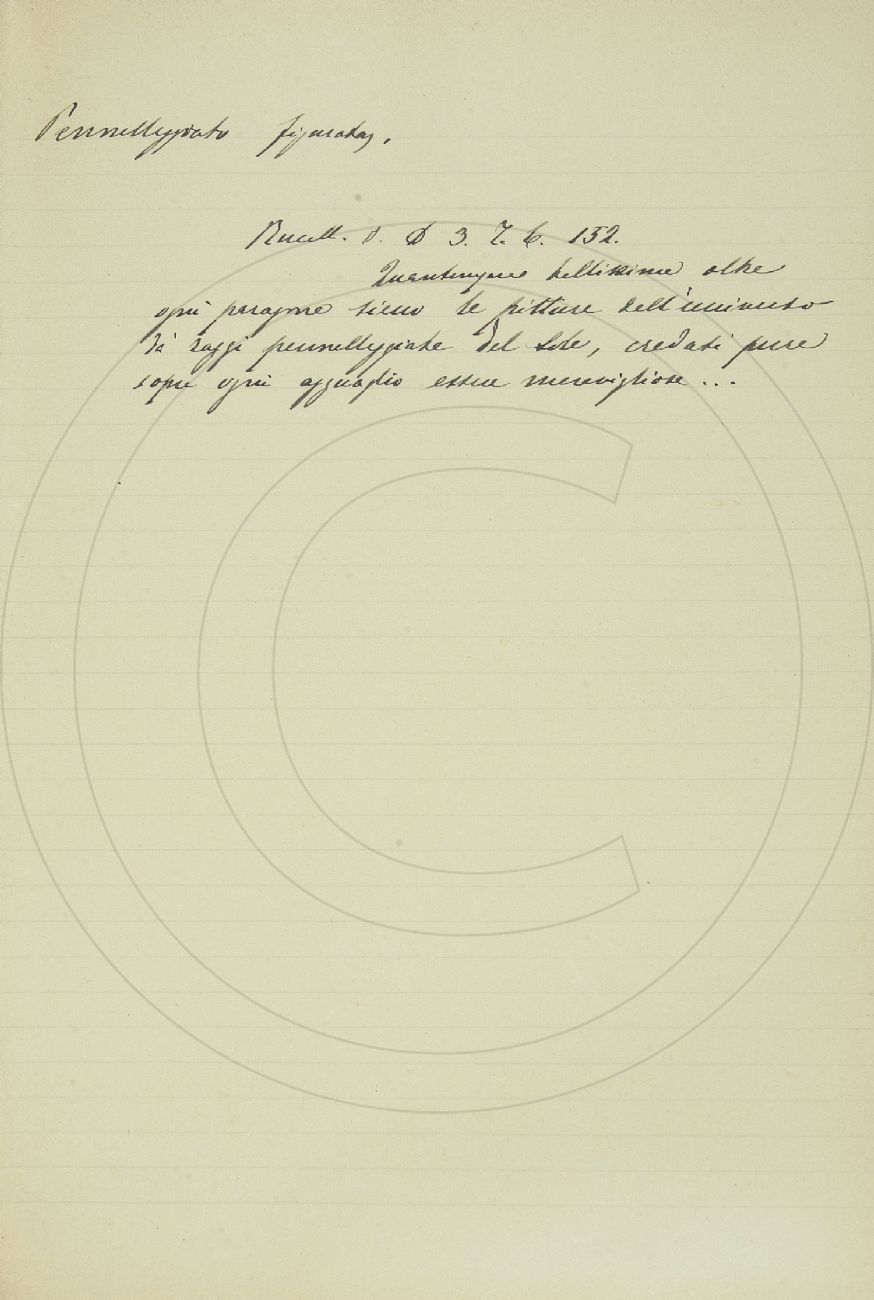 Pennelleggiato figurato,
Rucell. D. 3. 7. 6. 152.
Quantunque bellissime oltre
ogni paragone sieno le pitture dell'universo
da' raggi pennelleggiate del Sole, credasi pure
sopra ogni agguaglio essere meravigliose ...